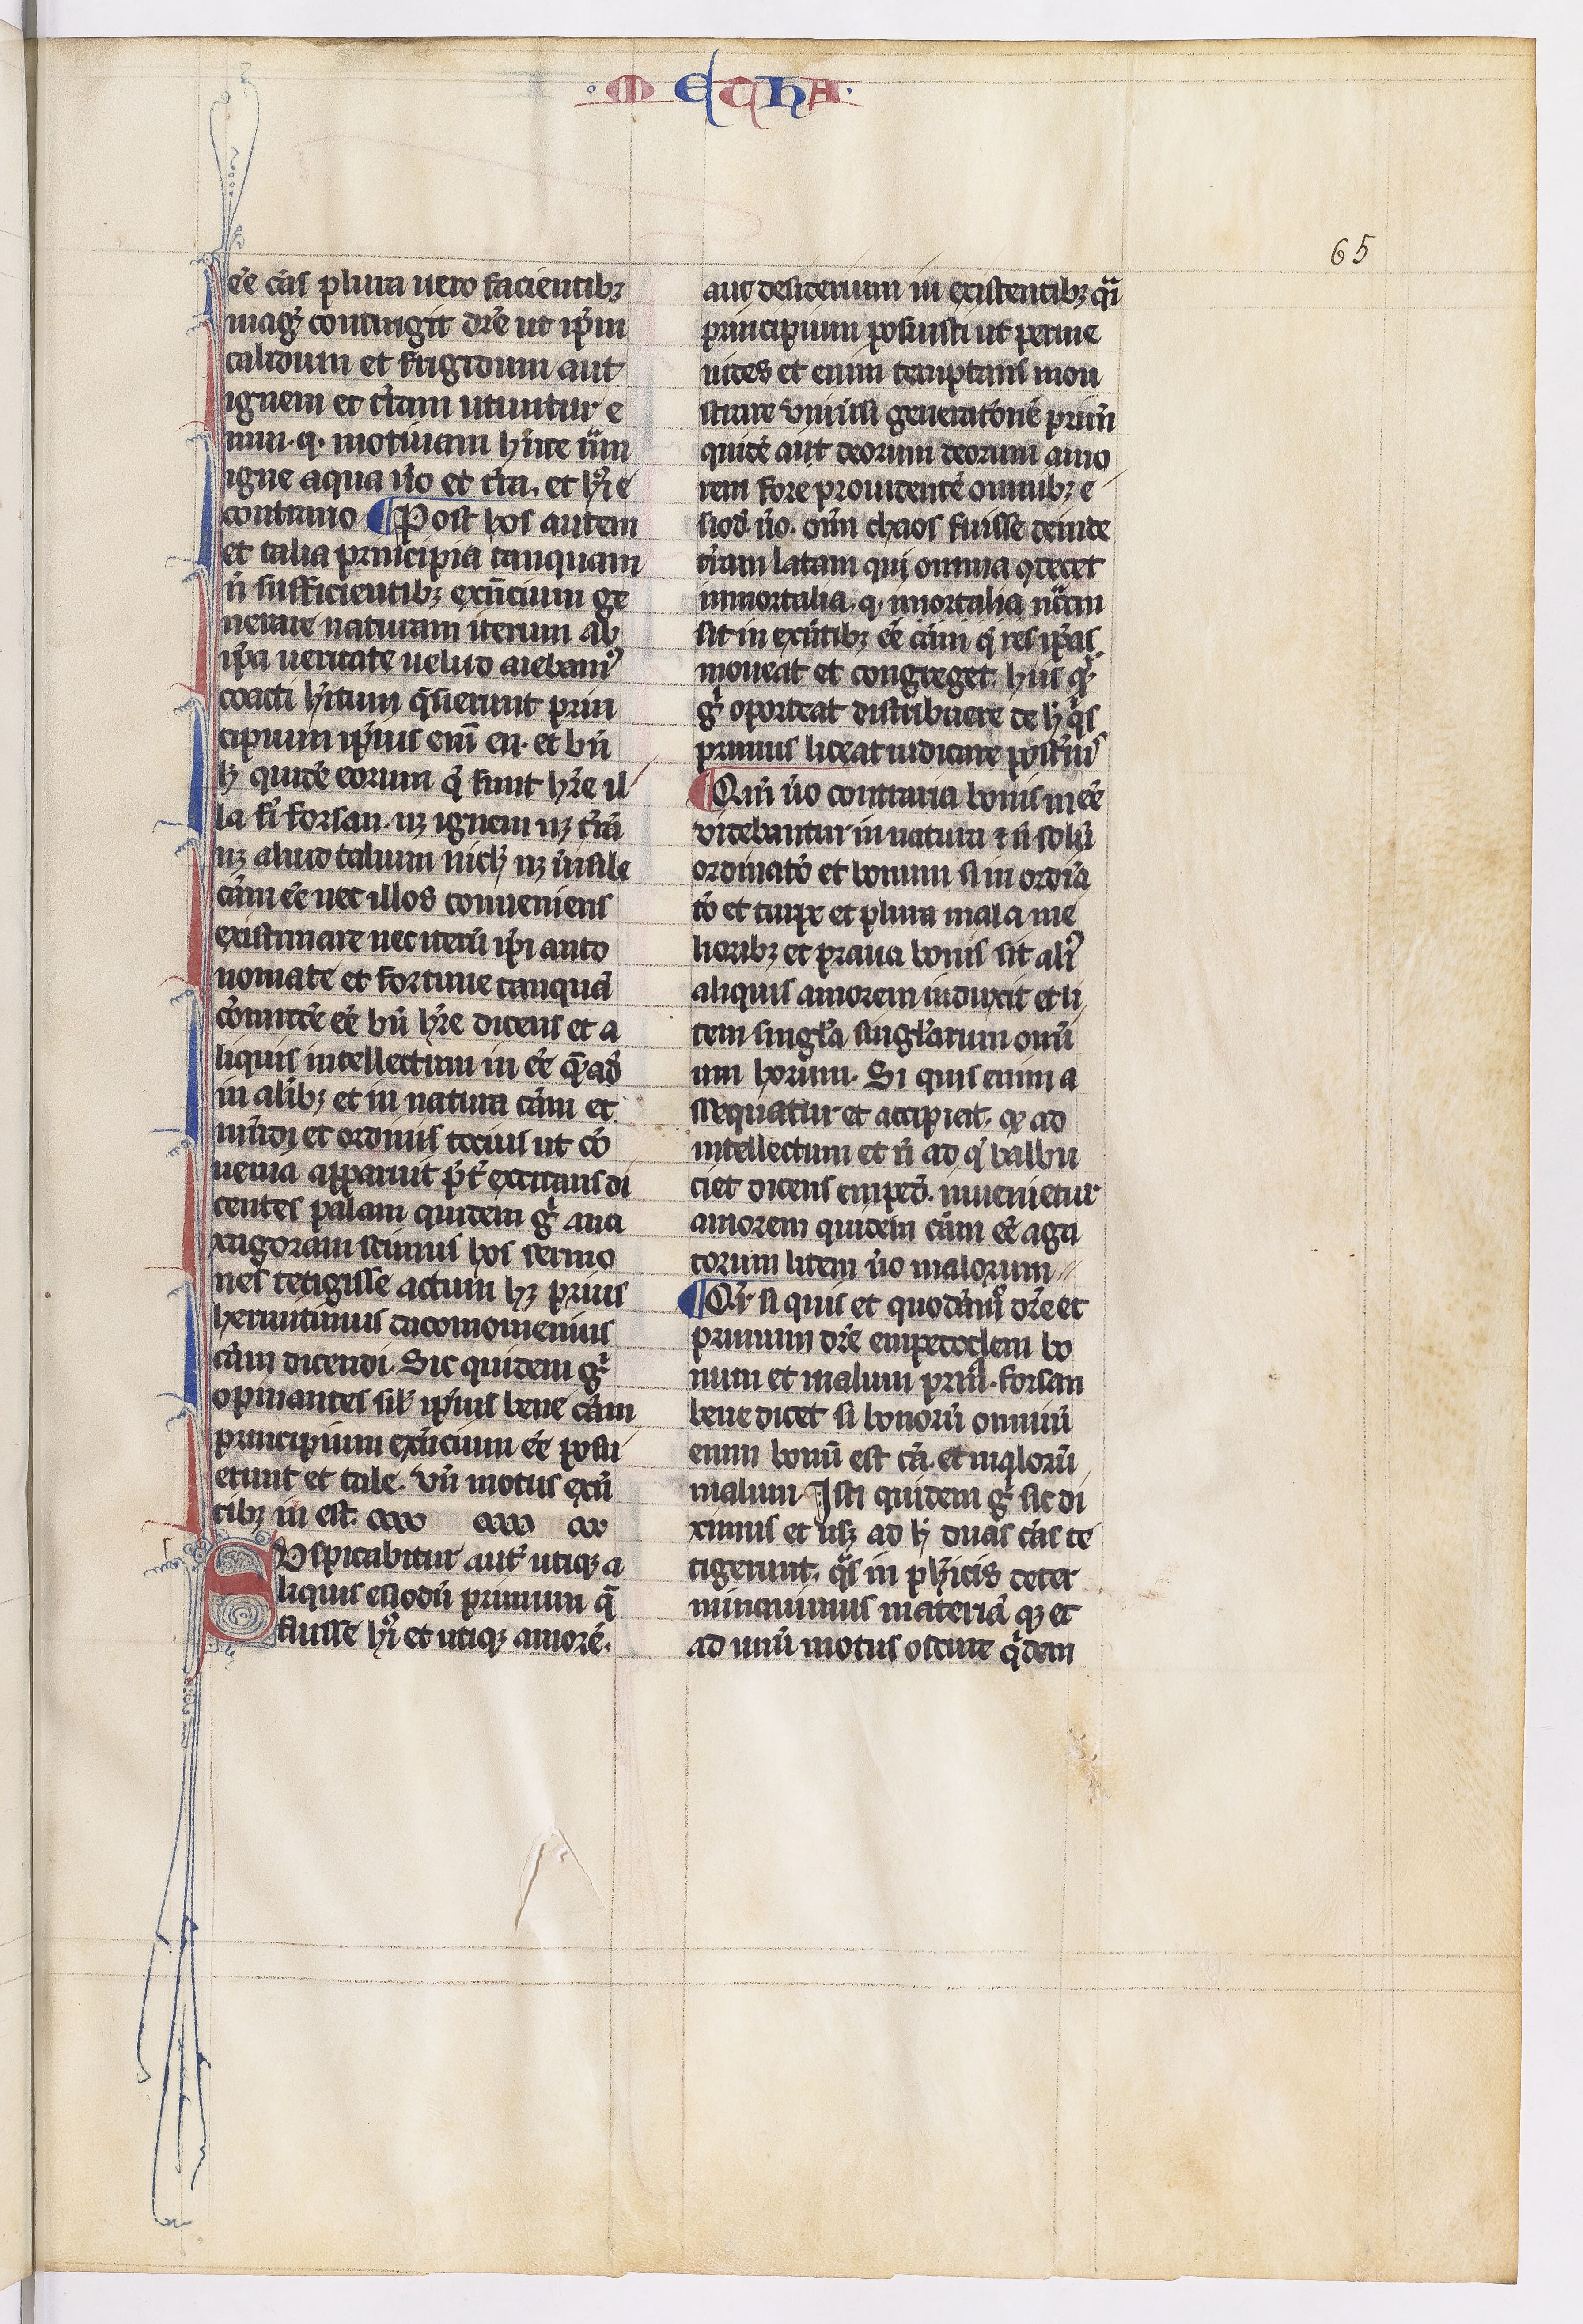 METHA
65
eē cās plura uero facientibꝫ
mag̉ contingit dr̄e ut ip̄m
calidum et frigidum aut
ignem et t̄ram utuntur e
nim .q. motiuam hn̄te nām
igne aqua ṽo et t̄ra. et hꝰi e
contrario ¶ Post hos autem
et talia principia tanquam
n̄ sufficientibꝫ exn̄cium ge
nerare naturam iterum ab
ip̄a ueritate uelud aiebamꝰ
coacti hitum q̄sierunt prin
cipium ip̄ius enī en. et bn̄
h̵ quidē eorum q̄ fiunt hr̄e il
la fi̇ forsan. nꝫ ignem nꝫ t̄rā
nꝫ aliud talium nich̵ nꝫ ūisile
cām eē nec illos conueniens
existimare nec iterū ip̄i auto
nomate et fortune tanquā
cōmittē eē bn̄ hr̄e dicens et a
liquis intellectum in eē q̄mad̄
in alībꝫ et in natura cām et
mūdi et ordinis tocius ut cō
uenia apparuit p̄t excitans di
centes palam quidem g̊ ana
xagoram scimus hos sermo
nes tetigisse actum hꝫ prius
hermtimus cacomomenius
cām dicendi. Sic quidem g̊
opinantes sil̵ ip̄ius bene cām
principium exn̄cium eē posu
erunt et tale. vn̄ motus exn̄
tibꝫ in est.
Suspicabitur aut̄ utiqꝫ a
liquis esiodū primum q̄
siuisse hꝰi et utiqꝫ amorē.
aut desiderium in existentibꝫ q̄i
principium posuisti ut perme
nides et enim temptans mon
strare vniūsi generatōnē primū
quidē aut deorum deorum amo
rem fore prouidentē omnibꝫ e
siod. ṽo. oīm chaos fuisse deinde
t̄ram latam qui omnia ꝯdecet
inmortalia .q. inmortalia nccm̄
sit in exn̄tibꝫ eē cām q̄ res ip̄as
moueat et congreget. hiis qꝫ
g̊ oporteat distribuere de h̵ q̄s
primus liceat iudicare post̄ius
¶ Qm̄ ṽo contraria bonis in eē
videbantur in natura ⁊ n̄ solū
ordinatō et bonum sꝫ in ordīa
tō et turpe et plura mala me
lioribꝫ et praua bonis sit alꝰ
aliquis amorem induxit et li
tem singl̵a singl̵arum omī
um horum. Si quis enim a
ssequatur et accipiat. qꝫ ad
intellectum et n̄ ad q̄ balbu
ciet dicens emped̄. inuenietur
amorem quidem cām eē aga
torum litem ṽo malorum
¶ Qr̄ si quis et quodāmꝰ dr̄e et
primum dr̄e empedoclem bo
num et malum prin̄. forsan
bene dicet si bonorū omniū
enim bonū est cā. et malorū
malum. Isti quidem g̊ sic di
ximus et usqꝫ ad h̵ duas cās te
tigerunt. q̄s in ph̵icis deter
minauimus materiā qꝫ et
ad unū motus obscure q̄dem